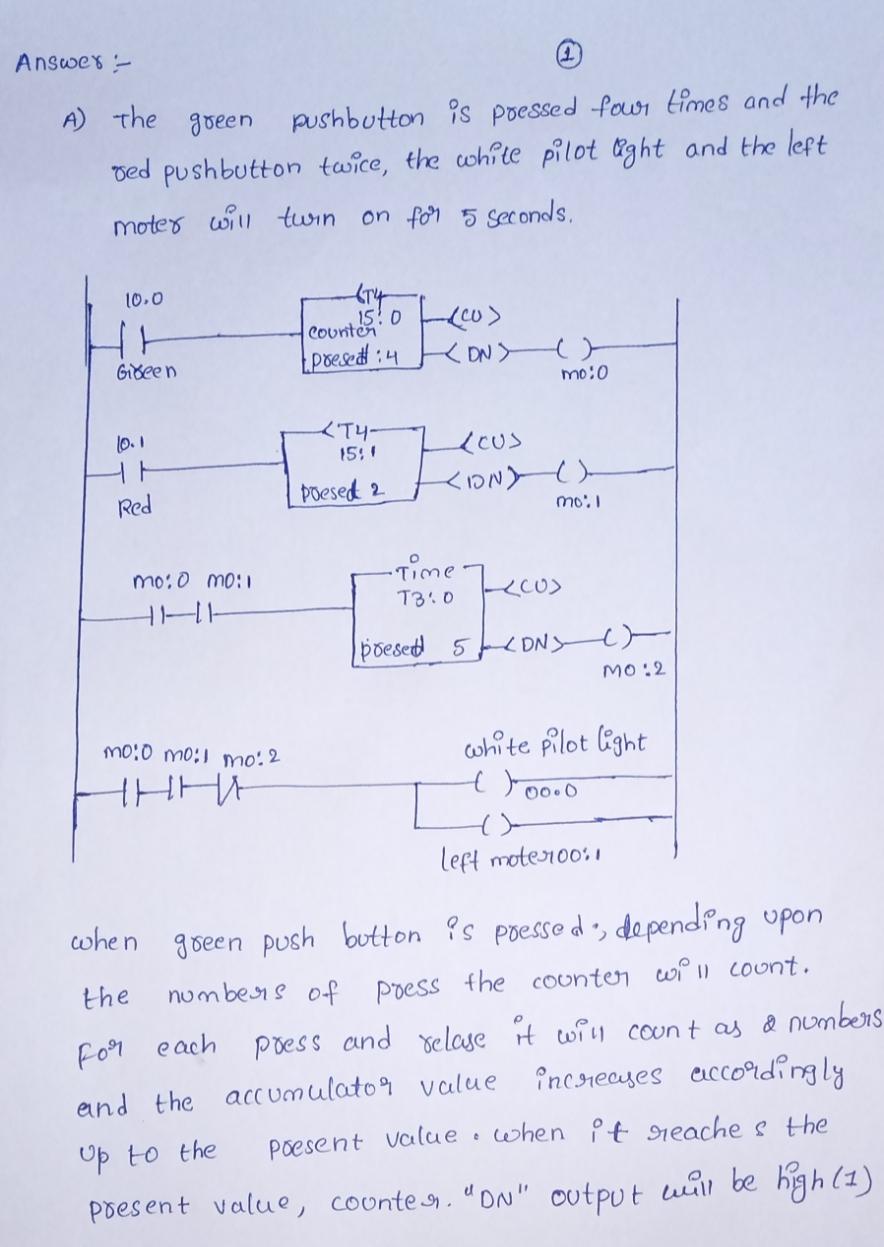 Answer :-
①
A) The green pushbutton is pressed four times and the
red pushbutton twice, the white pilot light and the left
moter will turn on for 5 seconds.
10.0
CT4
15:0
<CU>
counter
presed : 4
<DN>
Green
mo:0
10.1
CT4
15:1
<CU>
presed 2
<DN>
Red
mo:1
mo:0 mo:1
Time
T3:0
<CU>
presed 5
<DN>
mo:2
mo:0 mo:1 mo:2
white pilot light
00.0
left moter 00:1
when green push button is pressed, depending upon
the numbers of press the counter will count.
For each press and relase it will count as & numbers
and the accumulator value increases accordingly
up to the present value. when it reaches the
present value, counter. "DN" output will be high (1)